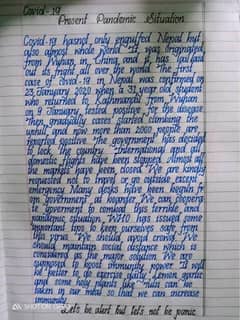 Covid-19
Present Pandemic Situation
Covid-19 hasnot only engulfed Nepal but
also almost whole World. It was originated
from Wuhan, in China and it has laid
out its fright all over the world. The first
case of covid-19 in Nepal was confirmed on
23 January 2020 when a 31 year old student
who returned to Kathmandu from Wuhan
on 9 January, tested positive for the disease
Then gradually cases started climbing the
uphill and now more than 2000 people are
reported positive. The government has decided
to lock the country. International and all
domestic flights have been stopped. Almost all
the markets have been closed. We are kindly
requested not to travel or go outside except
emergency. Many desks have been begun from
government at boarder. We can cooperate
government to combat this terrible and
pandemic situation. WHO has issued some
important tips to keep ourselves safe from
this virus. We should avoid crowd. We
should maintain social distance which is
considered as the major solution. We are
supposed to boost immunity power. It will
be better to do exercise daily. Lemon, garlic
and some holy plants like can be
taken in our meal so that we can increase
immunity.
Let's be alert but let's not be panic.
SHOT ON